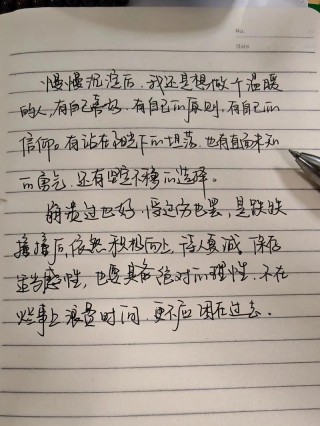 慢慢沉淀后，我还是想做个温暖
的人，有自己喜好，有自己的原则，有自己的
信仰。有站在阳光下的坦荡，也有直面未知
的勇气，还有坚定不移的选择。
崩溃过也好，难过也罢，是跌跌
撞撞后，依然积极向上，待人真诚，保存
适当感性，也要具备绝对的理性，不在
些事上浪费时间，更不应困在过去。